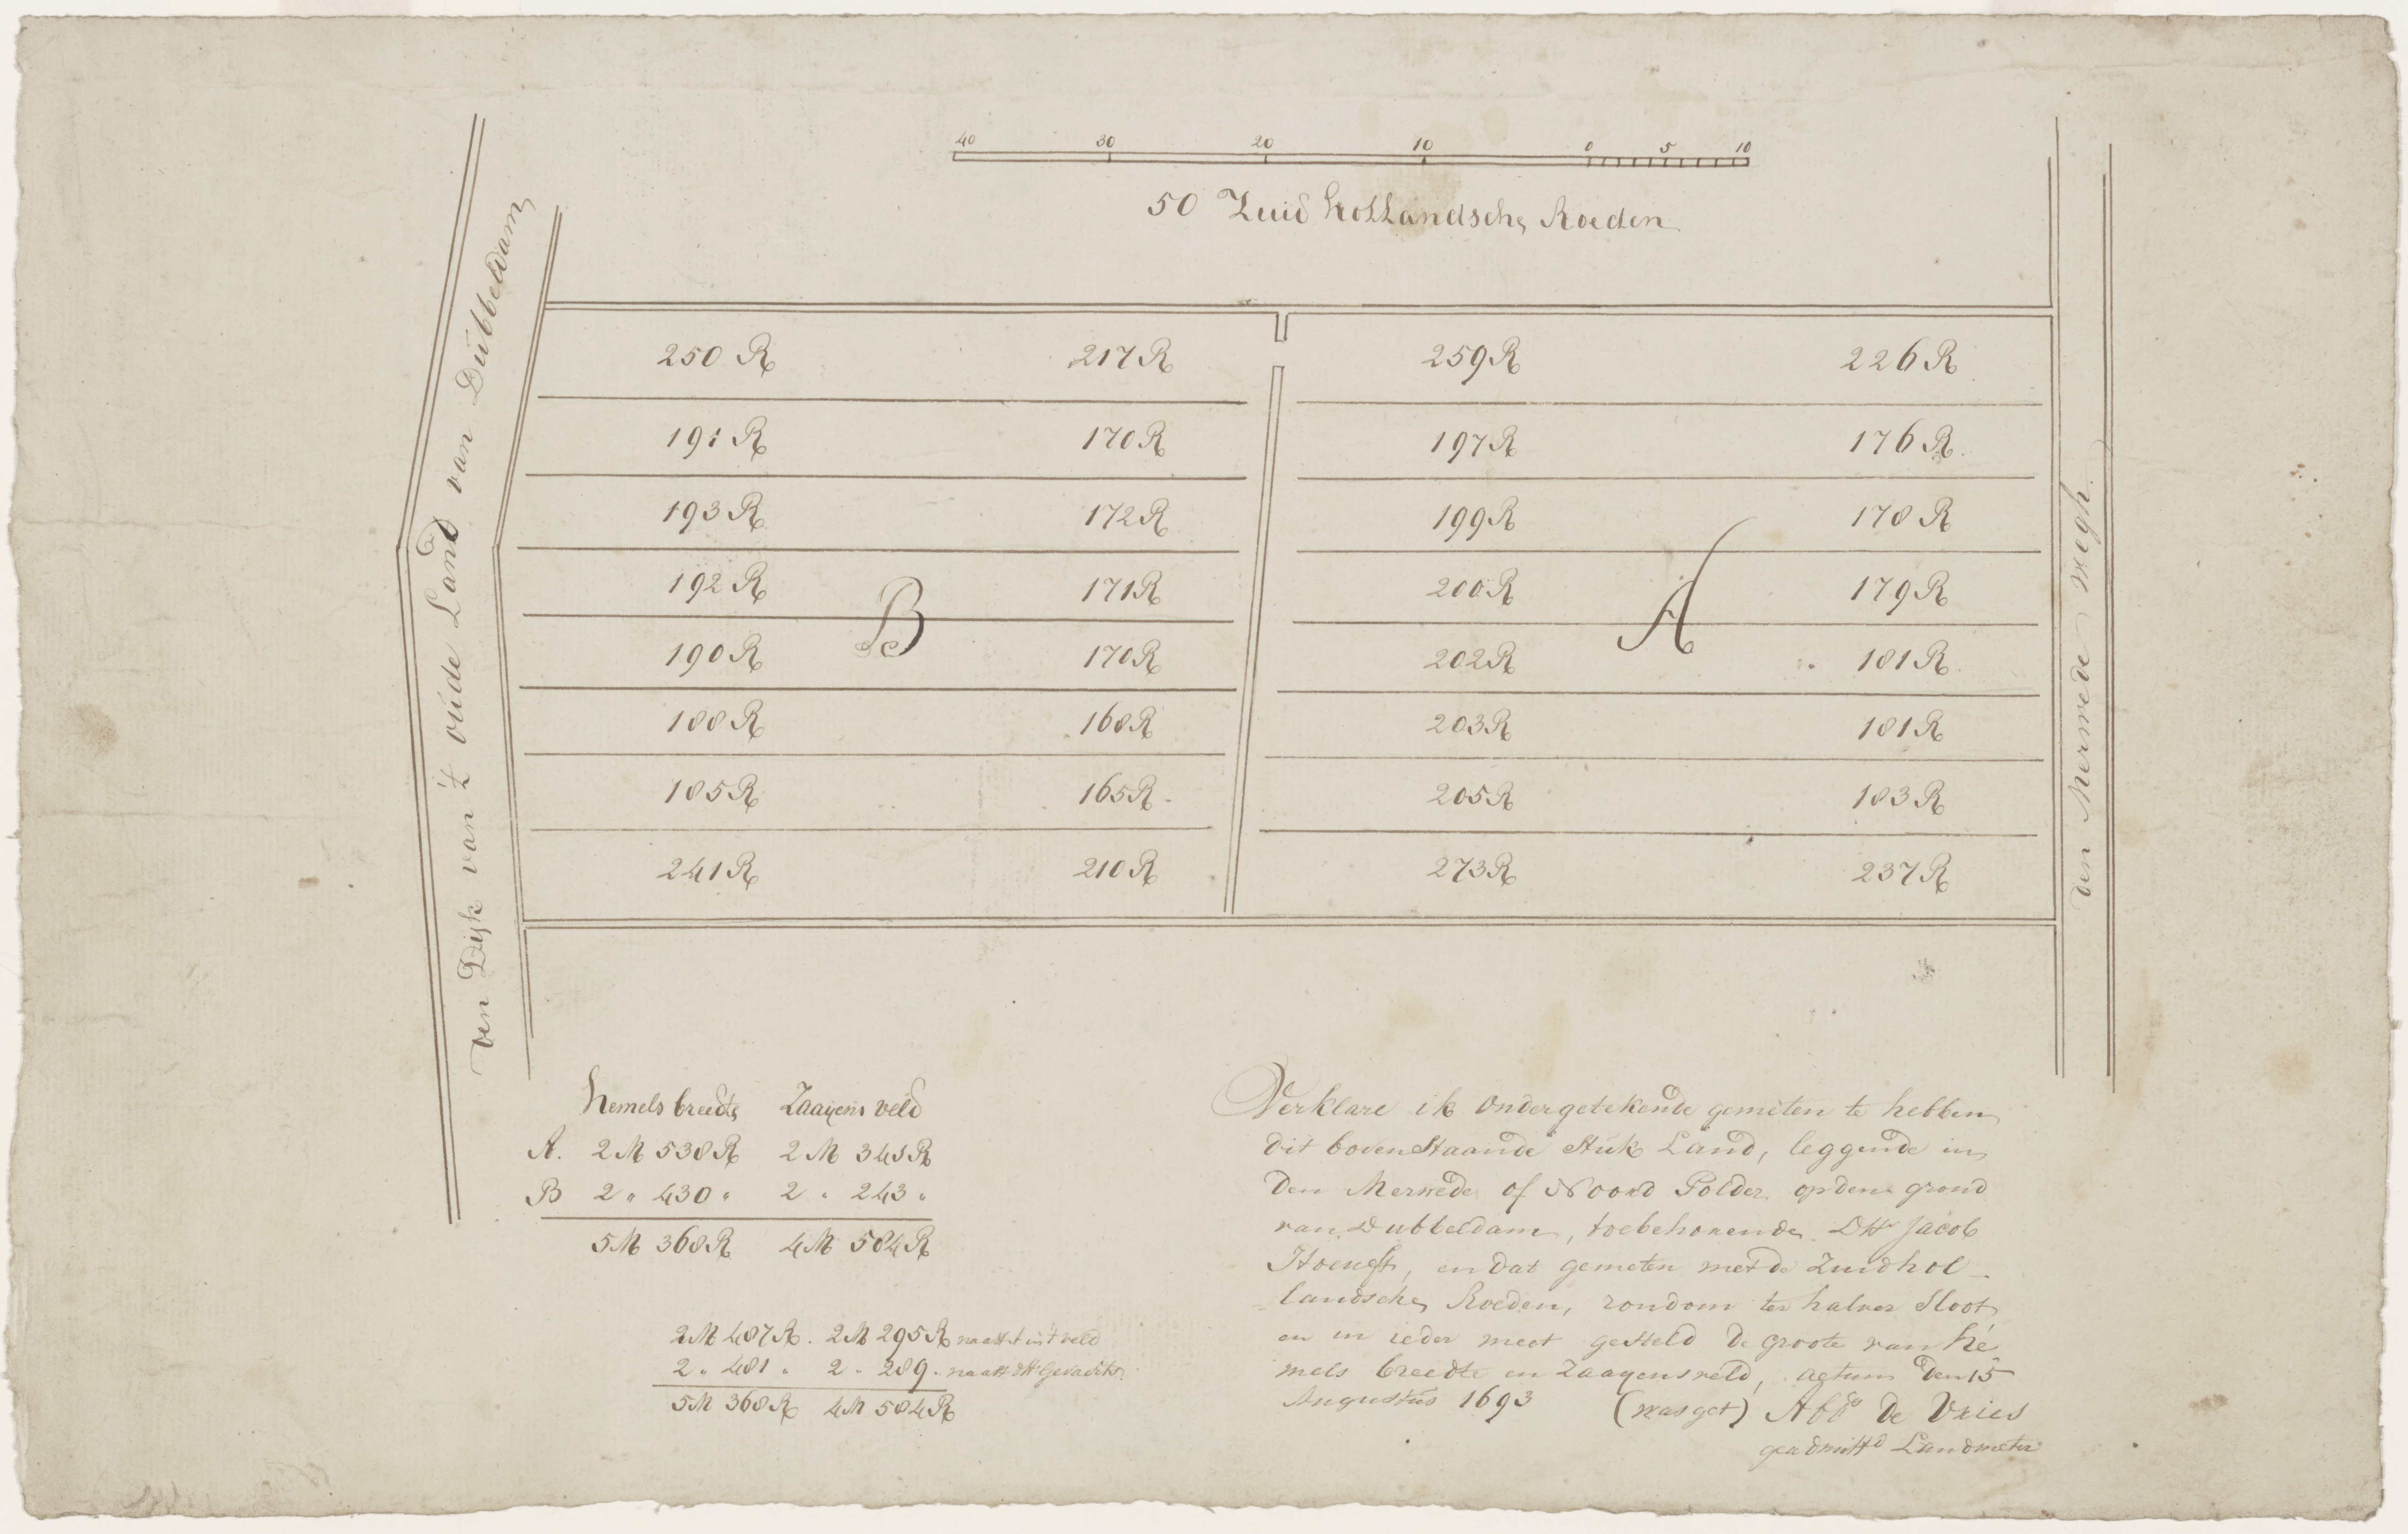 40 30 20 10 0 5 10
50 Zuid hollandsche Roeden
den Dijk van 't oude Land van Dubbeldam
250 R 217 R 259 R 226 R
191 R 170 R 197 R 176 R.
193 R 172 R 199 R 178 R
192 R 171 R 200 R 179 R
B A
190 R 170 R 202 R 181 R.
188 R 168 R 203 R 181 R
185 R 165 R 205 R 183 R
241 R 210 R 273 R 237 R
den Merwede wegh.
hemels breedte Zaayens veld
A. 2 M 538 R 2 M 341 R
B 2 " 430 " 2 " 243 "
5 M 368 R 4 M 584 R
2 M 487 R. 2 M 295 R naast A in 't veld
2 " 481 " 2 " 289 " naast dHr
5 M 368 R 4 M 584 R
Verklare ik ondergetekende gemeten te hebben
dit bovenstaande Stuk Land, leggende in
den Merwede of Noord Polder op den grond
van Dubbeldam, toebehorende DHr Jacob
en dat gemeten met de Zuidhol-
landsche Roeden, rondom ter halver Sloot
en in ieder meet gesteld de groote van he
mels breedte en Zaayensveld, actum den 15
Augustus 1693 (was get) de Vries
geadmittd Landmeter